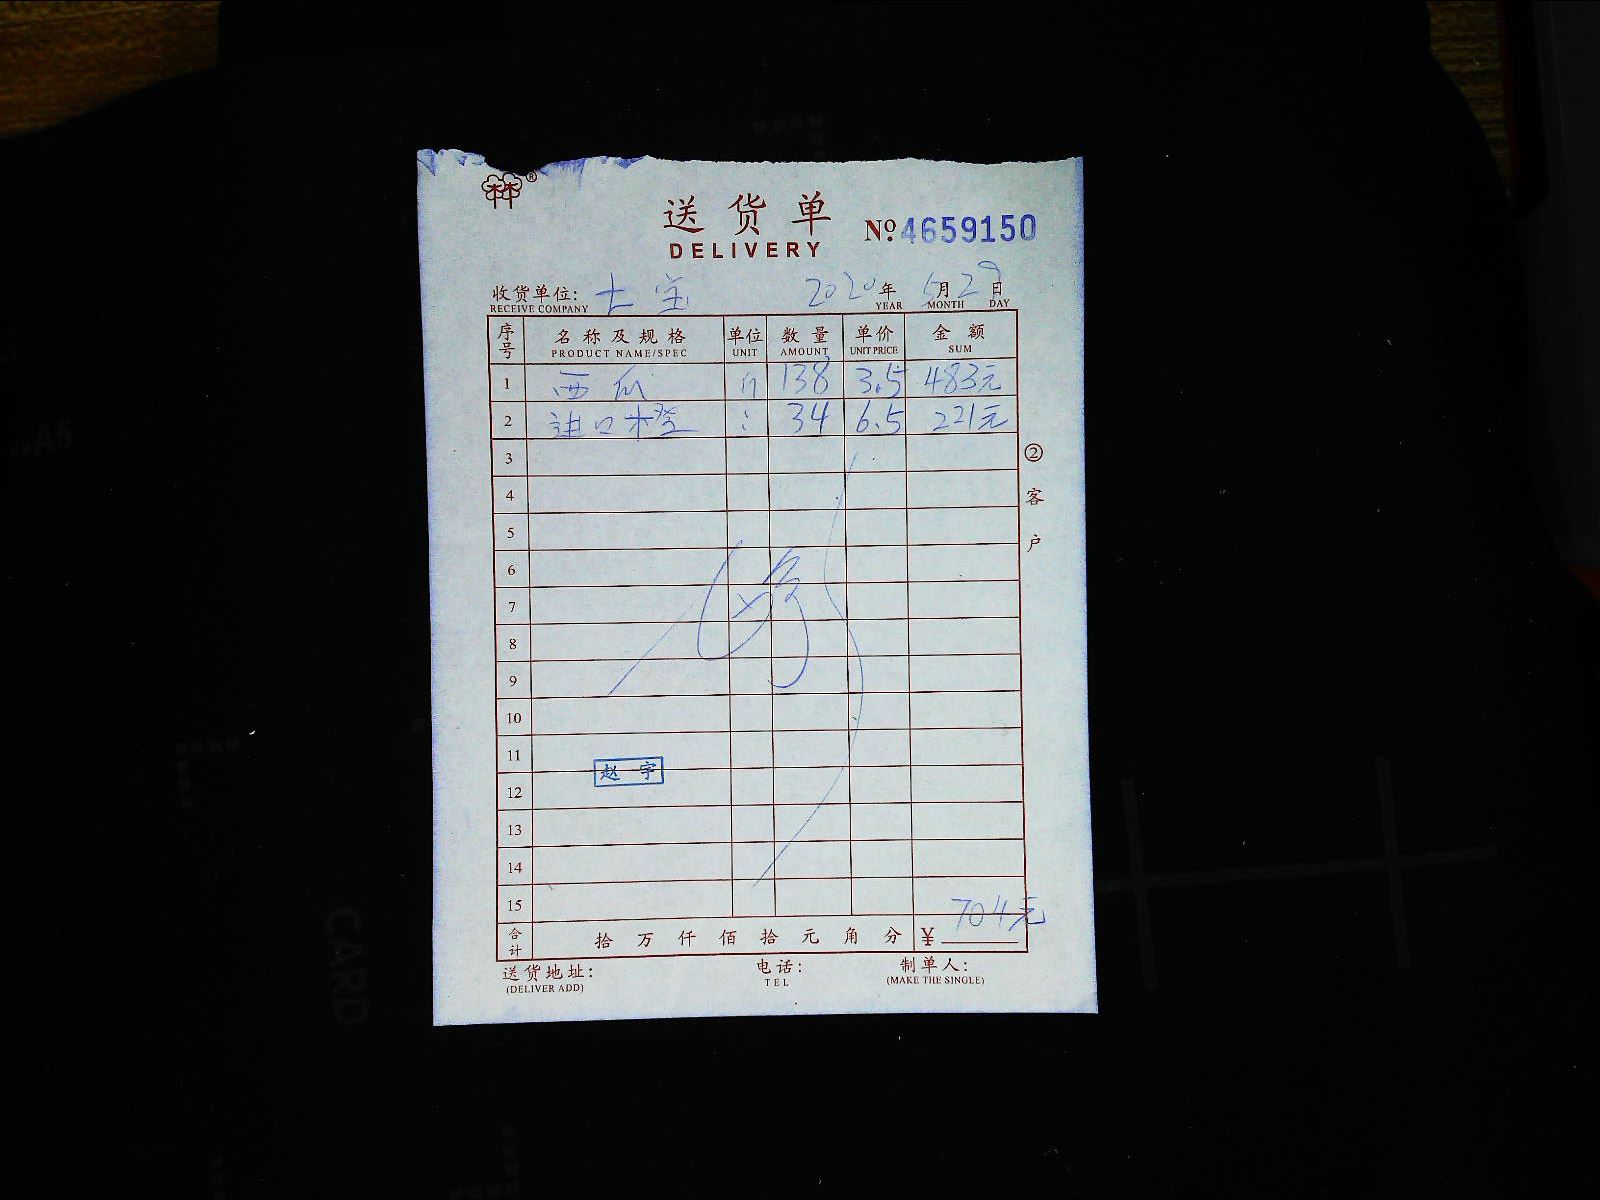 林®
送货单
DELIVERY
No. 4659150
收货单位: 2020年 5月29日
RECEIVE COMPANY YEAR MONTH DAY
序号 名称及规格 单位 数量 单价 金额
PRODUCT NAME/SPEC UNIT AMOUNT UNIT PRICE SUM
1 西瓜 斤 138 3.5 483元
2 进口橙 : 34 6.5 221元
3
4
5
6
7
8
9
10
11
赵宇
12
13
14
15
704元
合计 拾万仟佰拾元角分 ¥
②客户
送货地址: 电话: 制单人:
(DELIVER ADD) TEL (MAKE THE SINGLE)
A5
CARD